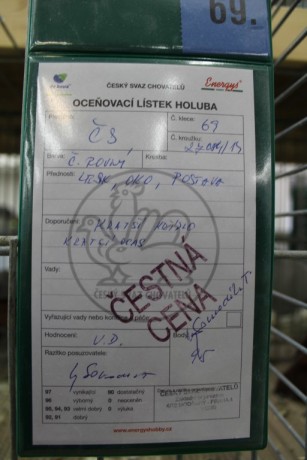 69.
ČESKÝ SVAZ CHOVATELŮ
Energys
OCEŇOVACÍ LÍSTEK HOLUBA
Plemeno:
ČS
Č. klece:
69
Č. kroužku:
Barva:
Č. ROVNÝ
Kresba:
Přednosti:
LESK, OKO, POSTAVA
Doporučení:
KRATŠÍ
KRATŠÍ OCAS
Vady:
ČESKÝ SVAZ CHOVATELŮ
ČESTNÁ
CENA
Vylučující vady nebo
Hodnocení:
V.D.
Body:
95
Razítko posuzovatele:
97 vynikající 90 dostatečný
96 výborný 0 neoceněn
95, 94, 93 velmi dobrý 0 výluka
92, 91 dobrý
www.energyshobby.cz